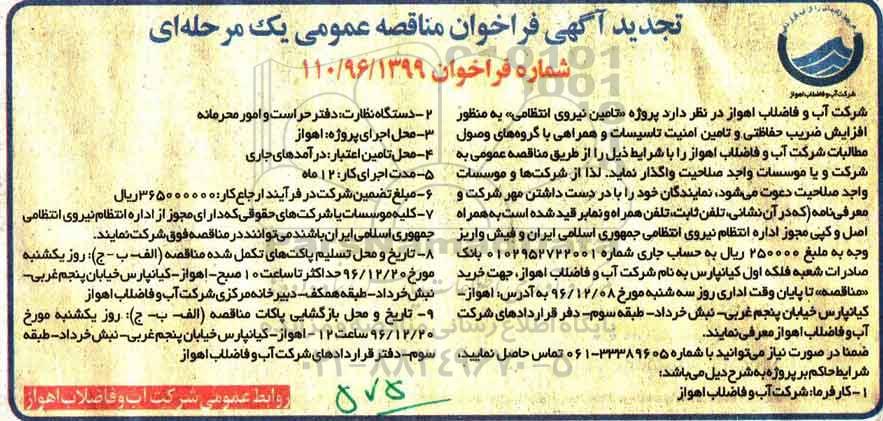 تجدید آگهی فراخوان مناقصه عمومی یک مرحله‌ای
شماره فراخوان ۱۱۰/۹۶/۱۳۹۹
شرکت آب و فاضلاب اهواز
شرکت آب و فاضلاب اهواز در نظر دارد پروژه «تامین نیروی انتظامی» به منظور
افزایش ضریب حفاظتی و تامین امنیت تاسیسات و همراهی با گروه‌های وصول
مطالبات شرکت آب و فاضلاب اهواز را با شرایط ذیل را از طریق مناقصه عمومی به
شرکت و یا موسسات واجد صلاحیت واگذار نماید. لذا از شرکت‌ها و موسسات
واجد صلاحیت دعوت می‌شود، نمایندگان خود را با در دست داشتن مهر شرکت و
معرفی‌نامه (که در آن نشانی، تلفن ثابت، تلفن همراه و نمابر قید شده است به همراه
اصل و کپی مجوز اداره انتظام نیروی انتظامی جمهوری اسلامی ایران و فیش واریز
وجه به ملبغ ۲۵۰۰۰۰ ریال به حساب جاری شماره ۰۱۰۲۹۵۲۷۲۲۰۰۱ بانک
صادرات شعبه فلکه اول کیانپارس به نام شرکت آب و فاضلاب اهواز، جهت خرید
«مناقصه» تا پایان وقت اداری روز سه شنبه مورخ ۹۶/۱۲/۰۸ به آدرس: اهواز-
کیانپارس خیابان پنجم غربی- نبش خرداد- طبقه سوم- دفر قراردادهای شرکت
آب و فاضلاب اهواز معرفی نمایند.
ضمنا در صورت نیاز می‌توانید با شماره ۳۳۳۸۹۶۰۵-۰۶۱ تماس حاصل نمایید.
شرایط حاکم بر پروژه به شرح دیل می‌باشد:
۱- کارفرما: شرکت آب و فاضلاب اهواز
۲- دستگاه نظارت: دفتر حراست و امور محرمانه
۳- محل اجرای پروژه: اهواز
۴- محل تامین اعتبار: درآمدهای جاری
۵- مدت اجرای کار: ۱۲ ماه
۶- مبلغ تضمین شرکت در فرآیند ارجاع کار: ۳۶۵۰۰۰۰۰۰ ریال
۷- کلیه موسسات یا شرکت‌های حقوقی که دارای مجوز از اداره انتظام نیروی انتظامی
جمهوری اسلامی ایران باشند می‌توانند در مناقصه فوق شرکت نمایند.
۸- تاریخ و محل تسلیم پاکت‌های تکمل شده مناقصه (الف- ب- ج): روز یکشنبه
مورخ ۹۶/۱۲/۲۰ حداکثر تا ساعت ۱۰ صبح- اهواز- کیانپارس خیابان پنجم غربی-
نبش خرداد- طبقه همکف- دبیرخانه مرکزی شرکت آب و فاضلاب اهواز
۹- تاریخ و محل بازگشایی پاکات مناقصه (الف- ب- ج): روز یکشنبه مورخ
۹۶/۱۲/۲۰ ساعت ۱۲- اهواز- کیانپارس خیابان پنجم غربی- نبش خرداد- طبقه
سوم- دفتر قراردادهای شرکت آب و فاضلاب اهواز
روابط عمومی شرکت آب و فاضلاب اهواز
پایگاه اطلاع رسانی
۰۲۱-۸۸۳۴۹۶۷۰-۵